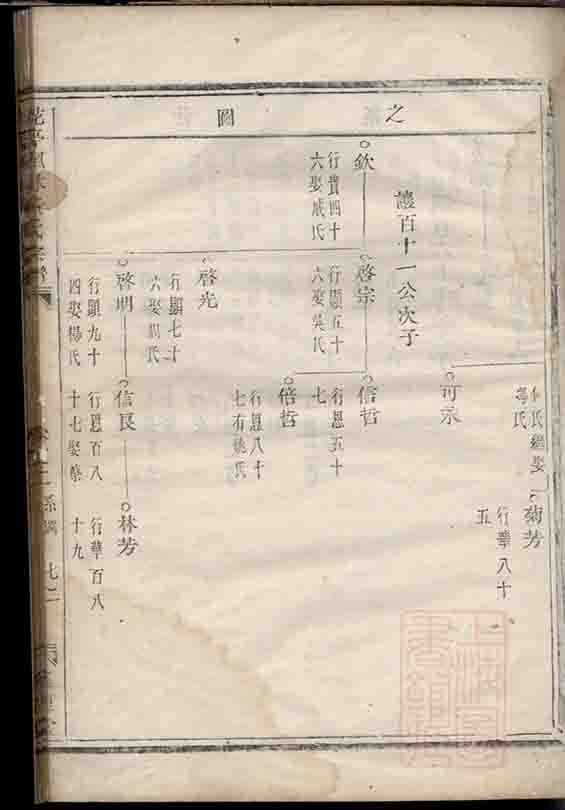 之
圖
何氏繼娶
菊芳
行華八十
五
可承
讓百十一公次子
欽
行貴四十
六娶戚氏
啓宗
行顯五十
六娶吳氏
信哲
行恩五十
七
倍哲
行恩八十
七有姚氏
啓光
行顯七十
六娶周氏
啓明
行顯九十
四娶楊氏
信良
行恩百八
十七娶蔡
林芳
行華百八
十九
系圖
上海圖
書館藏